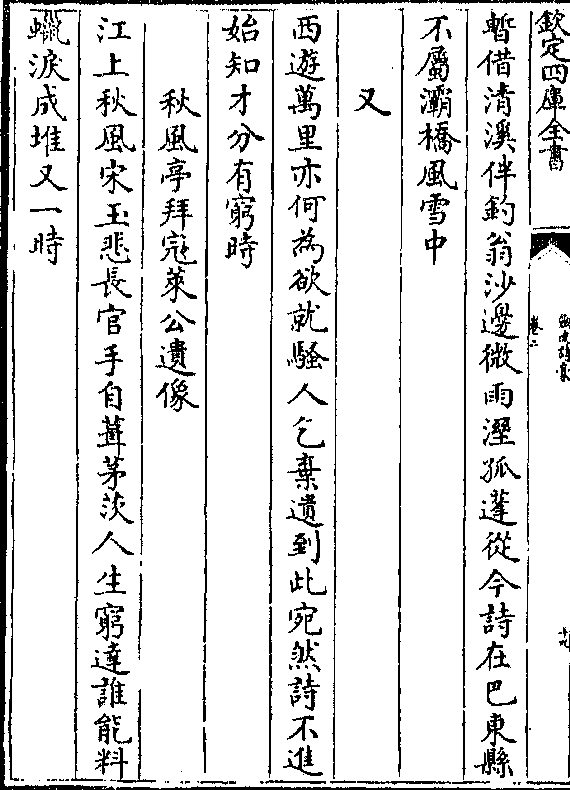 欽定四庫全書
卷二
暫借清溪伴釣翁沙邊微雨溼孤蓬從今詩在巴東縣
不屬灞橋風雪中
又
西遊萬里亦何為欲就騷人乞棄遺到此宛然詩不進
始知才分有窮時
秋風亭拜寇萊公遺像
江上秋風宋玉悲長官手自葺茅茨人生窮達誰能料
蠟淚成堆又一時